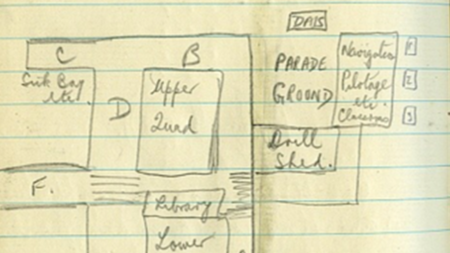 DAIS
C
B
PARADE
GROUND
Navigation
Pilotage
etc.
Classrooms
1
2
3
Sick Bay
etc.
D
Upper
Quad
Drill
Shed.
F.
Library
Lower